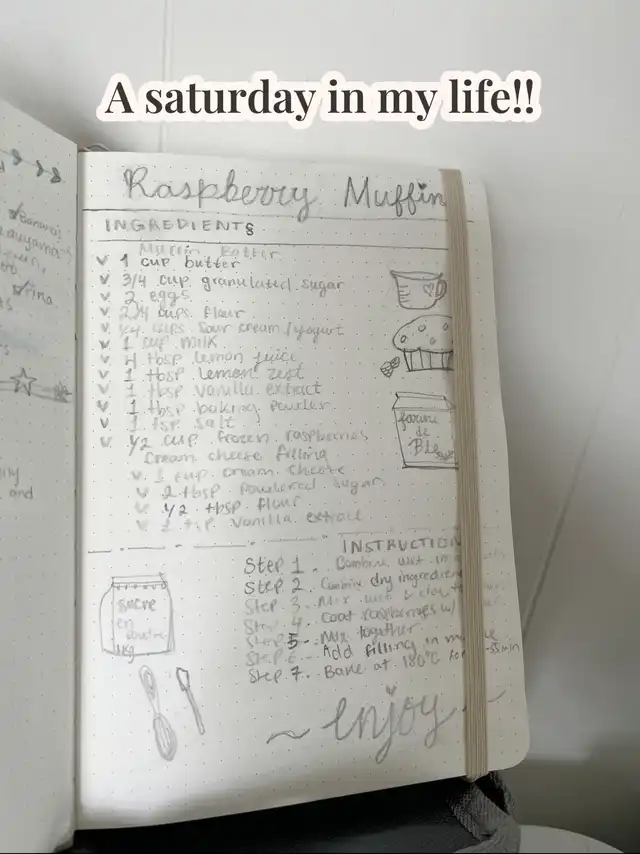 A saturday in my life!!
Raspberry Muffin
INGREDIENTS
Muffin Batter
v 1 cup butter
v 3/4 cup granulated sugar
v 2 eggs
v 2 1/4 cups flour
v 1/4 cups sour cream/yogurt
v 1 cup milk
v 4 tbsp lemon juice
v 1 tbsp lemon zest
v 1 tbsp vanilla extract
v 1 tbsp baking powder
v 1 tsp salt
v 1/2 cup frozen raspberries
cream cheese filling
v 1 cup cream cheese
v 2 tbsp powdered sugar
v 1/2 tbsp flour
v 1 tsp vanilla extract
farine
de
Blé
INSTRUCTION
Step 1. Combine wet in
Step 2. Combine dry ingredien
Step 3. Mix wet & dry
Step 4. Coat raspberries w/
Step 5. Mix together
Step 6. Add filling in
Step 7. Bake at 180°C for -35min
sucre
en
poudre
1kg
~ enjoy ~
Banana
and